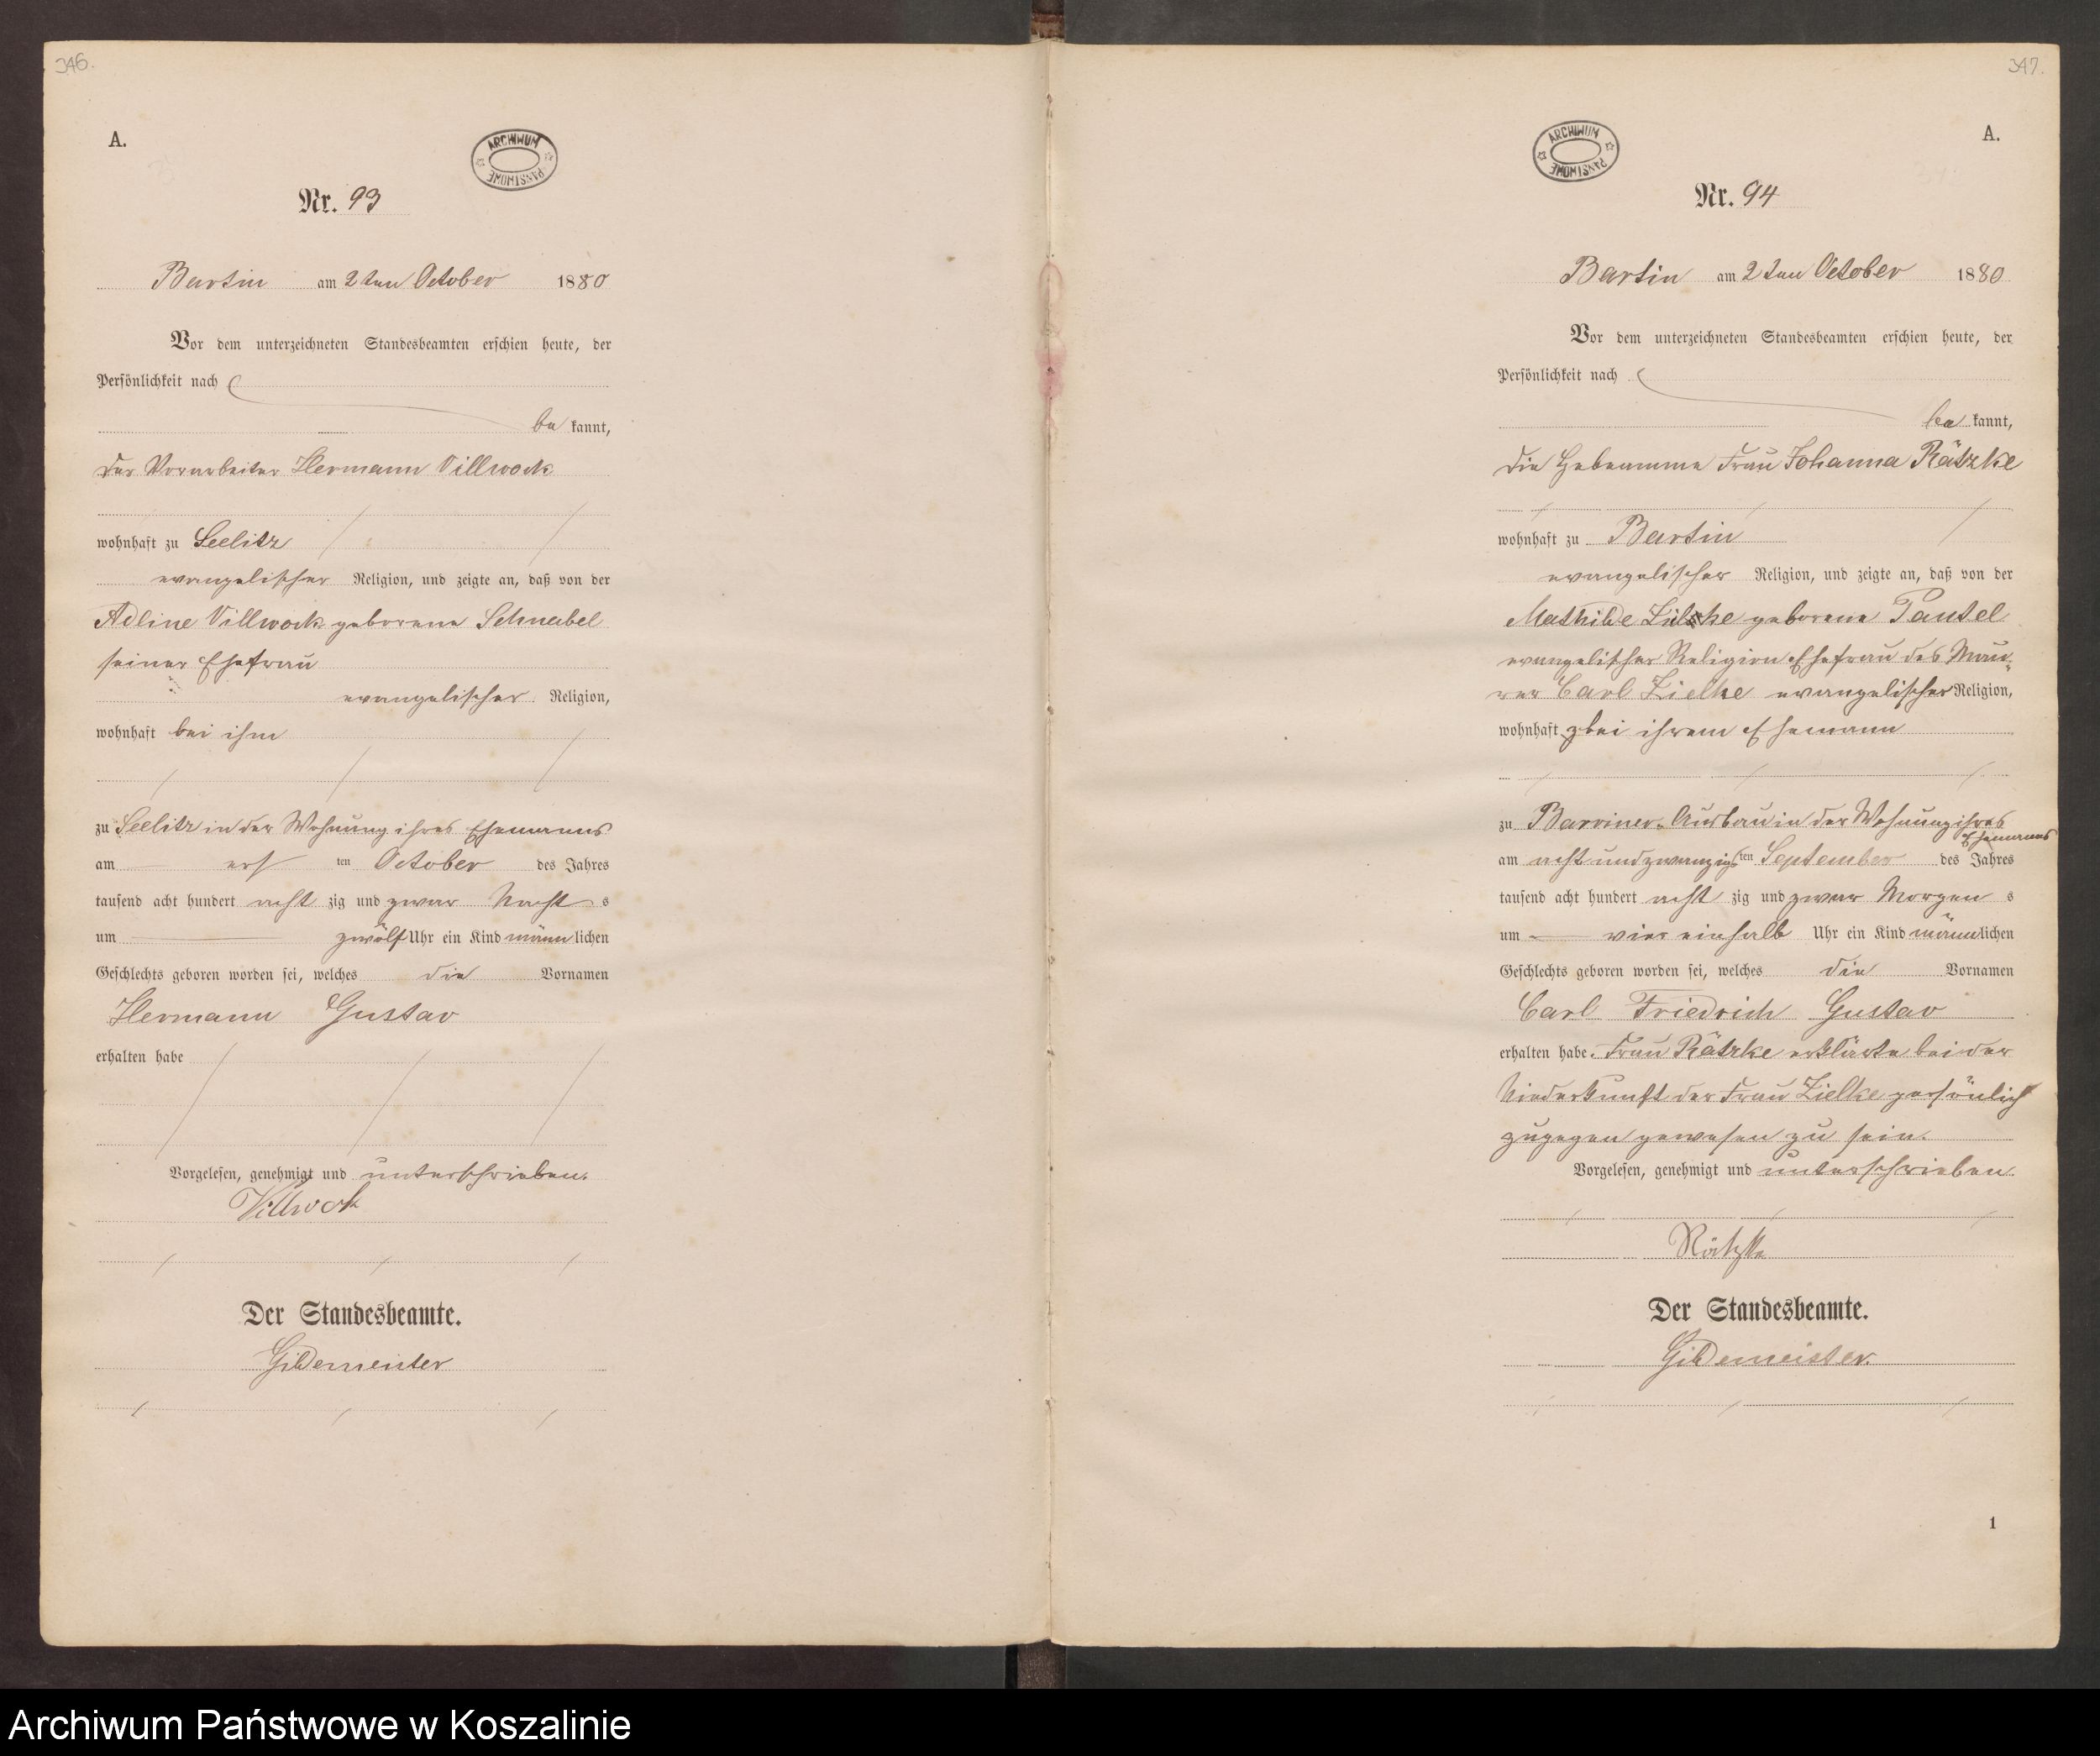 346.
A.
ARCHIWUM
PAŃSTWOWE
Nr. 93
Bartin am 2 ten October 1880
Vor dem unterzeichneten Standesbeamten erschien heute, der
Persönlichkeit nach
be kannt,
der Vorarbeiter Hermann Villwock
wohnhaft zu Seelitz
evangelischer Religion, und zeigte an, daß von der
Adline Villwock geborene Schnabel
seiner Ehefrau
evangelischer Religion,
wohnhaft bei ihm
zu Seelitz in der Wohnung ihres Ehemanns
am erst ten October des Jahres
tausend acht hundert acht zig und zwar Nacht s
um zwölf Uhr ein Kind männlichen
Geschlechts geboren worden sei, welches die Vornamen
Hermann Gustav
erhalten habe
Vorgelesen, genehmigt und unterschrieben.
Villwock
Der Standesbeamte.
Gildemeister
347.
A.
ARCHIWUM
PAŃSTWOWE
Nr. 94
Bartin am 2 ten October 1880
Vor dem unterzeichneten Standesbeamten erschien heute, der
Persönlichkeit nach
be kannt,
die Hebeamme Frau Johanna Rätzke
wohnhaft zu Bartin
evangelischer Religion, und zeigte an, daß von der
Mathilde Zielke geborene Pautel
evangelischer Religion Ehefrau des Mau-
rer Carl Zielke evangelischer Religion,
wohnhaft bei ihrem Ehemann
zu Barviner-Ausbau in der Wohnung ihres
Ehemanns
am acht und zwanzigs ten September des Jahres
tausend acht hundert acht zig und zwar Morgen s
um vier einhalb Uhr ein Kind männlichen
Geschlechts geboren worden sei, welches die Vornamen
Carl Friedrich Gustav
erhalten habe. Frau Rätzke erklärte bei der
Niederkunft der Frau Zielke persönlich
zugegen gewesen zu sein.
Vorgelesen, genehmigt und unterschrieben.
Rätzke
Der Standesbeamte.
Gildemeister.
1
Archiwum Państwowe w Koszalinie